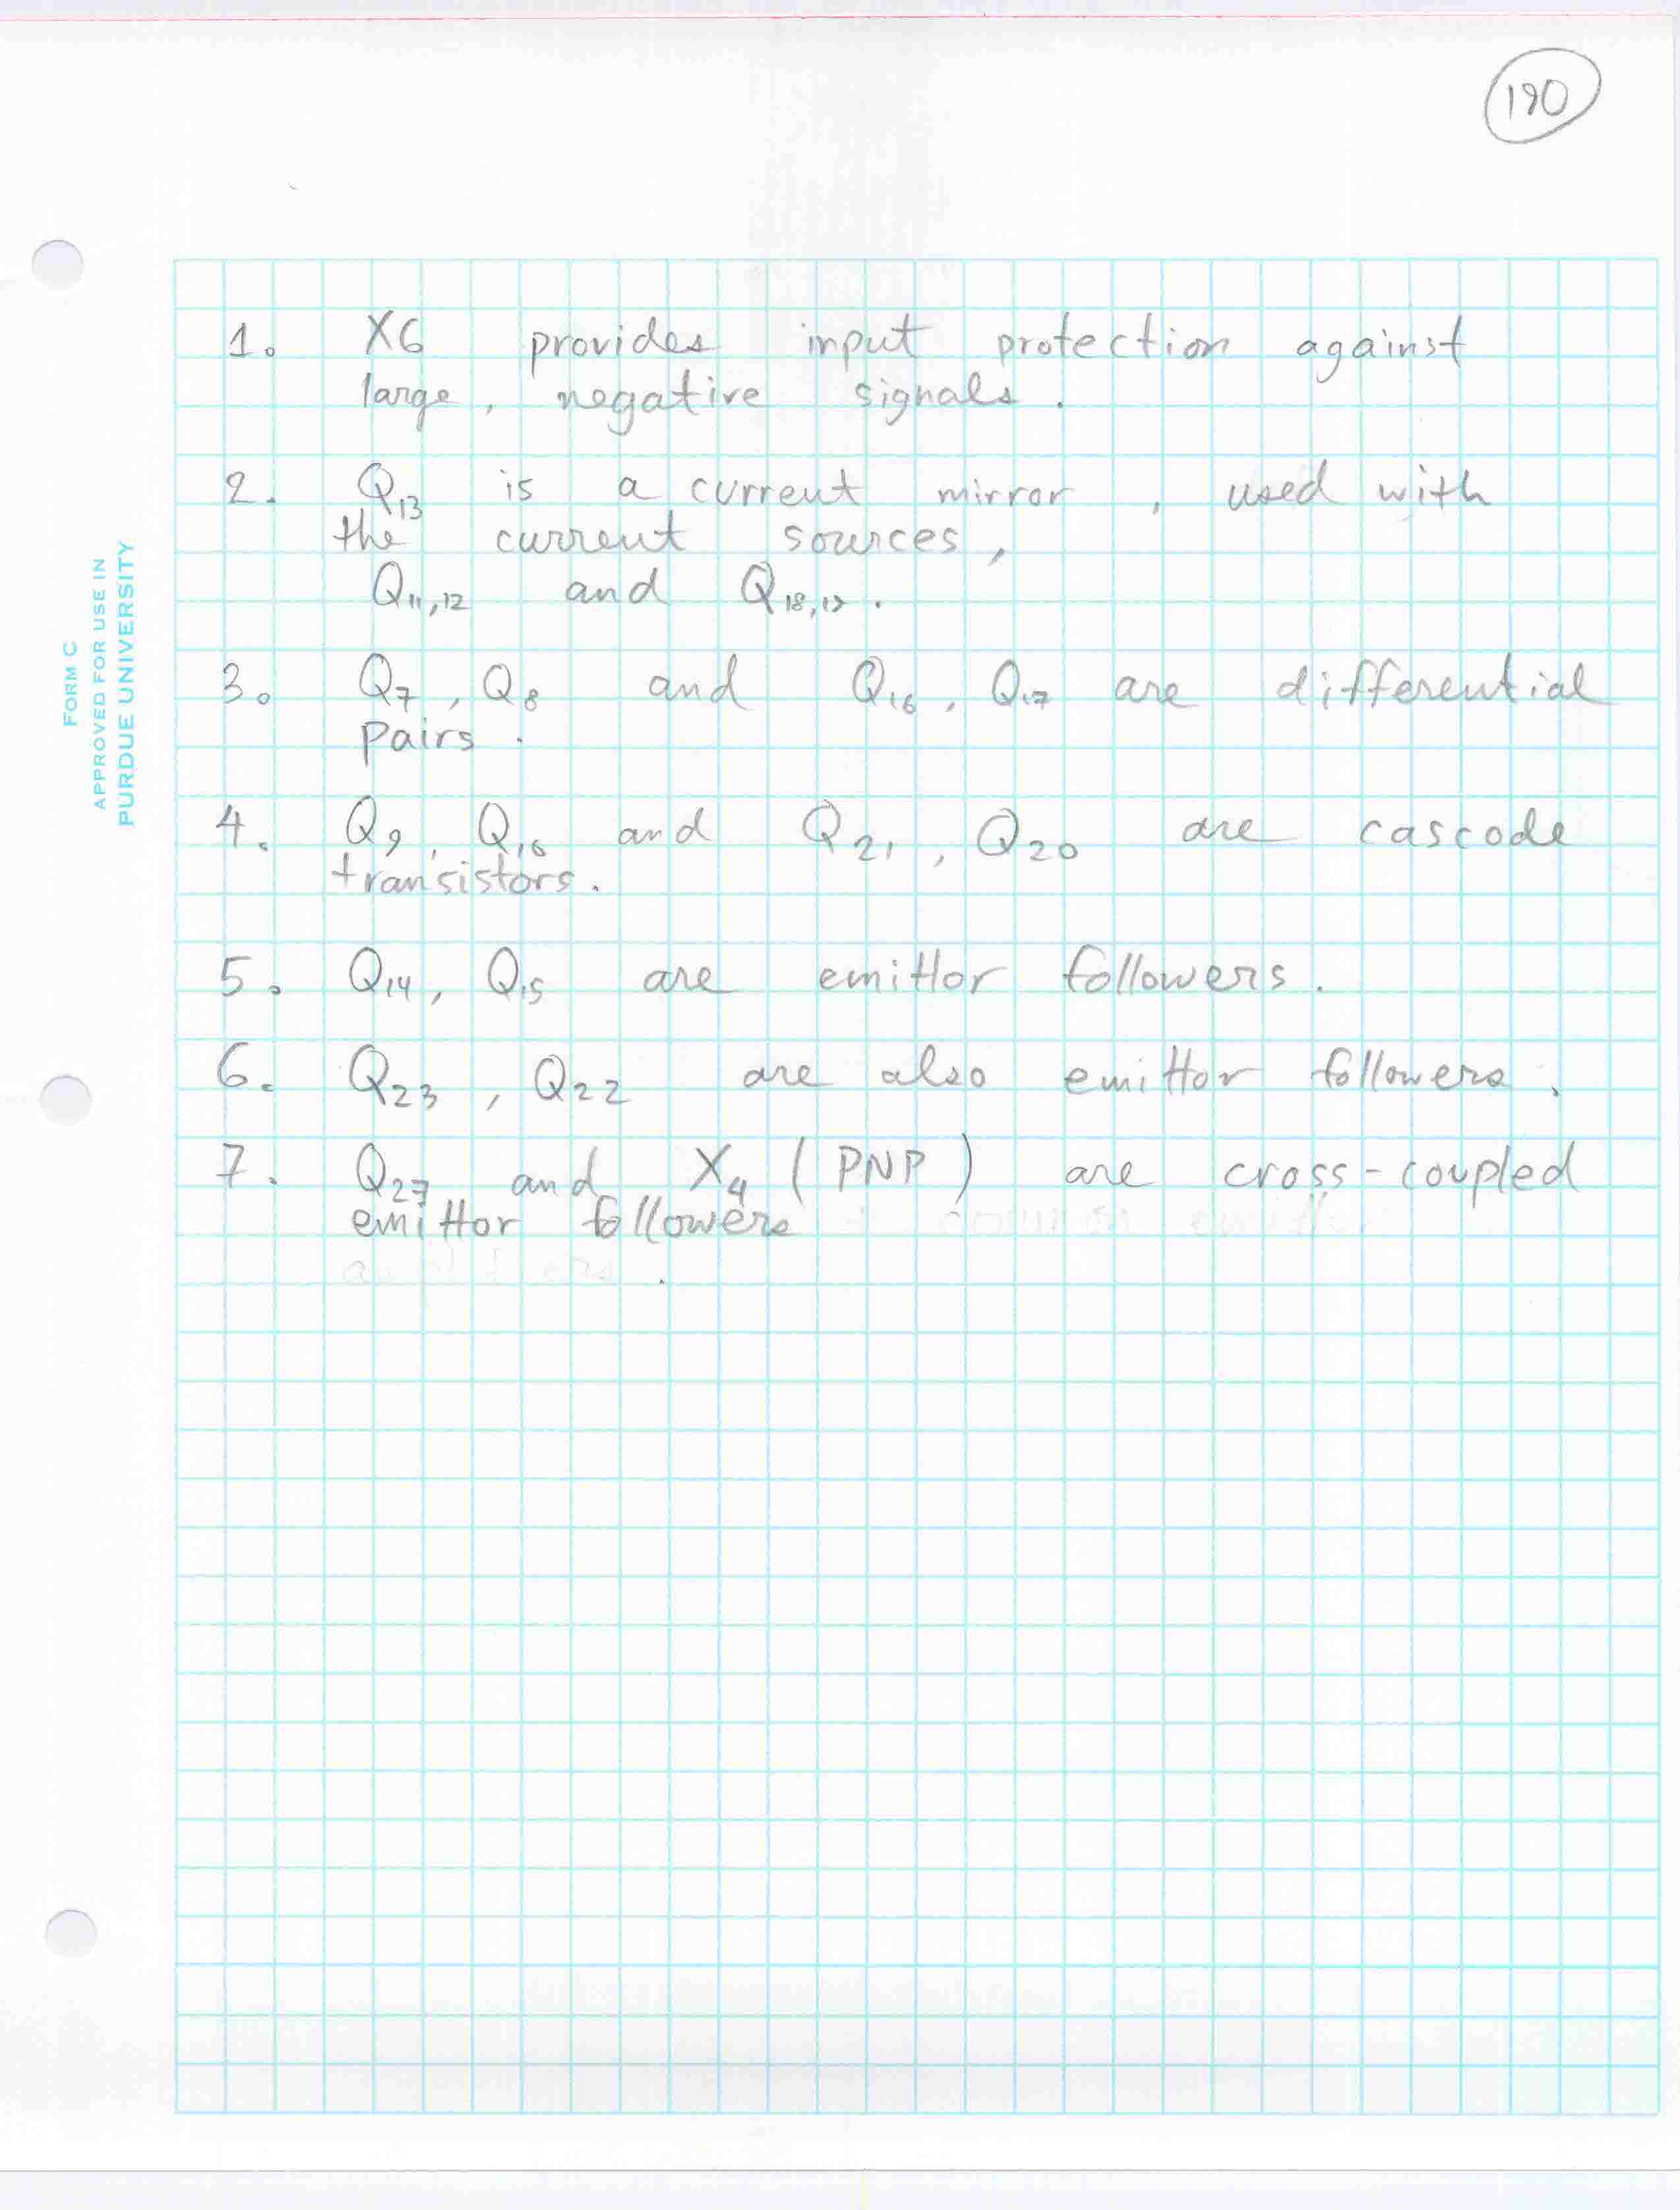 190
FORM C
APPROVED FOR USE IN
PURDUE UNIVERSITY
1. X6 provides input protection against
large, negative signals.
2. Q13 is a current mirror, used with
the current sources,
Q11,12 and Q18,19.
3. Q7, Q8 and Q16, Q17 are differential
pairs.
4. Q9, Q10 and Q21, Q20 are cascode
transistors.
5. Q14, Q15 are emittor followers.
6. Q23, Q22 are also emittor followers.
7. Q27 and X4 (PNP) are cross-coupled
emittor followers